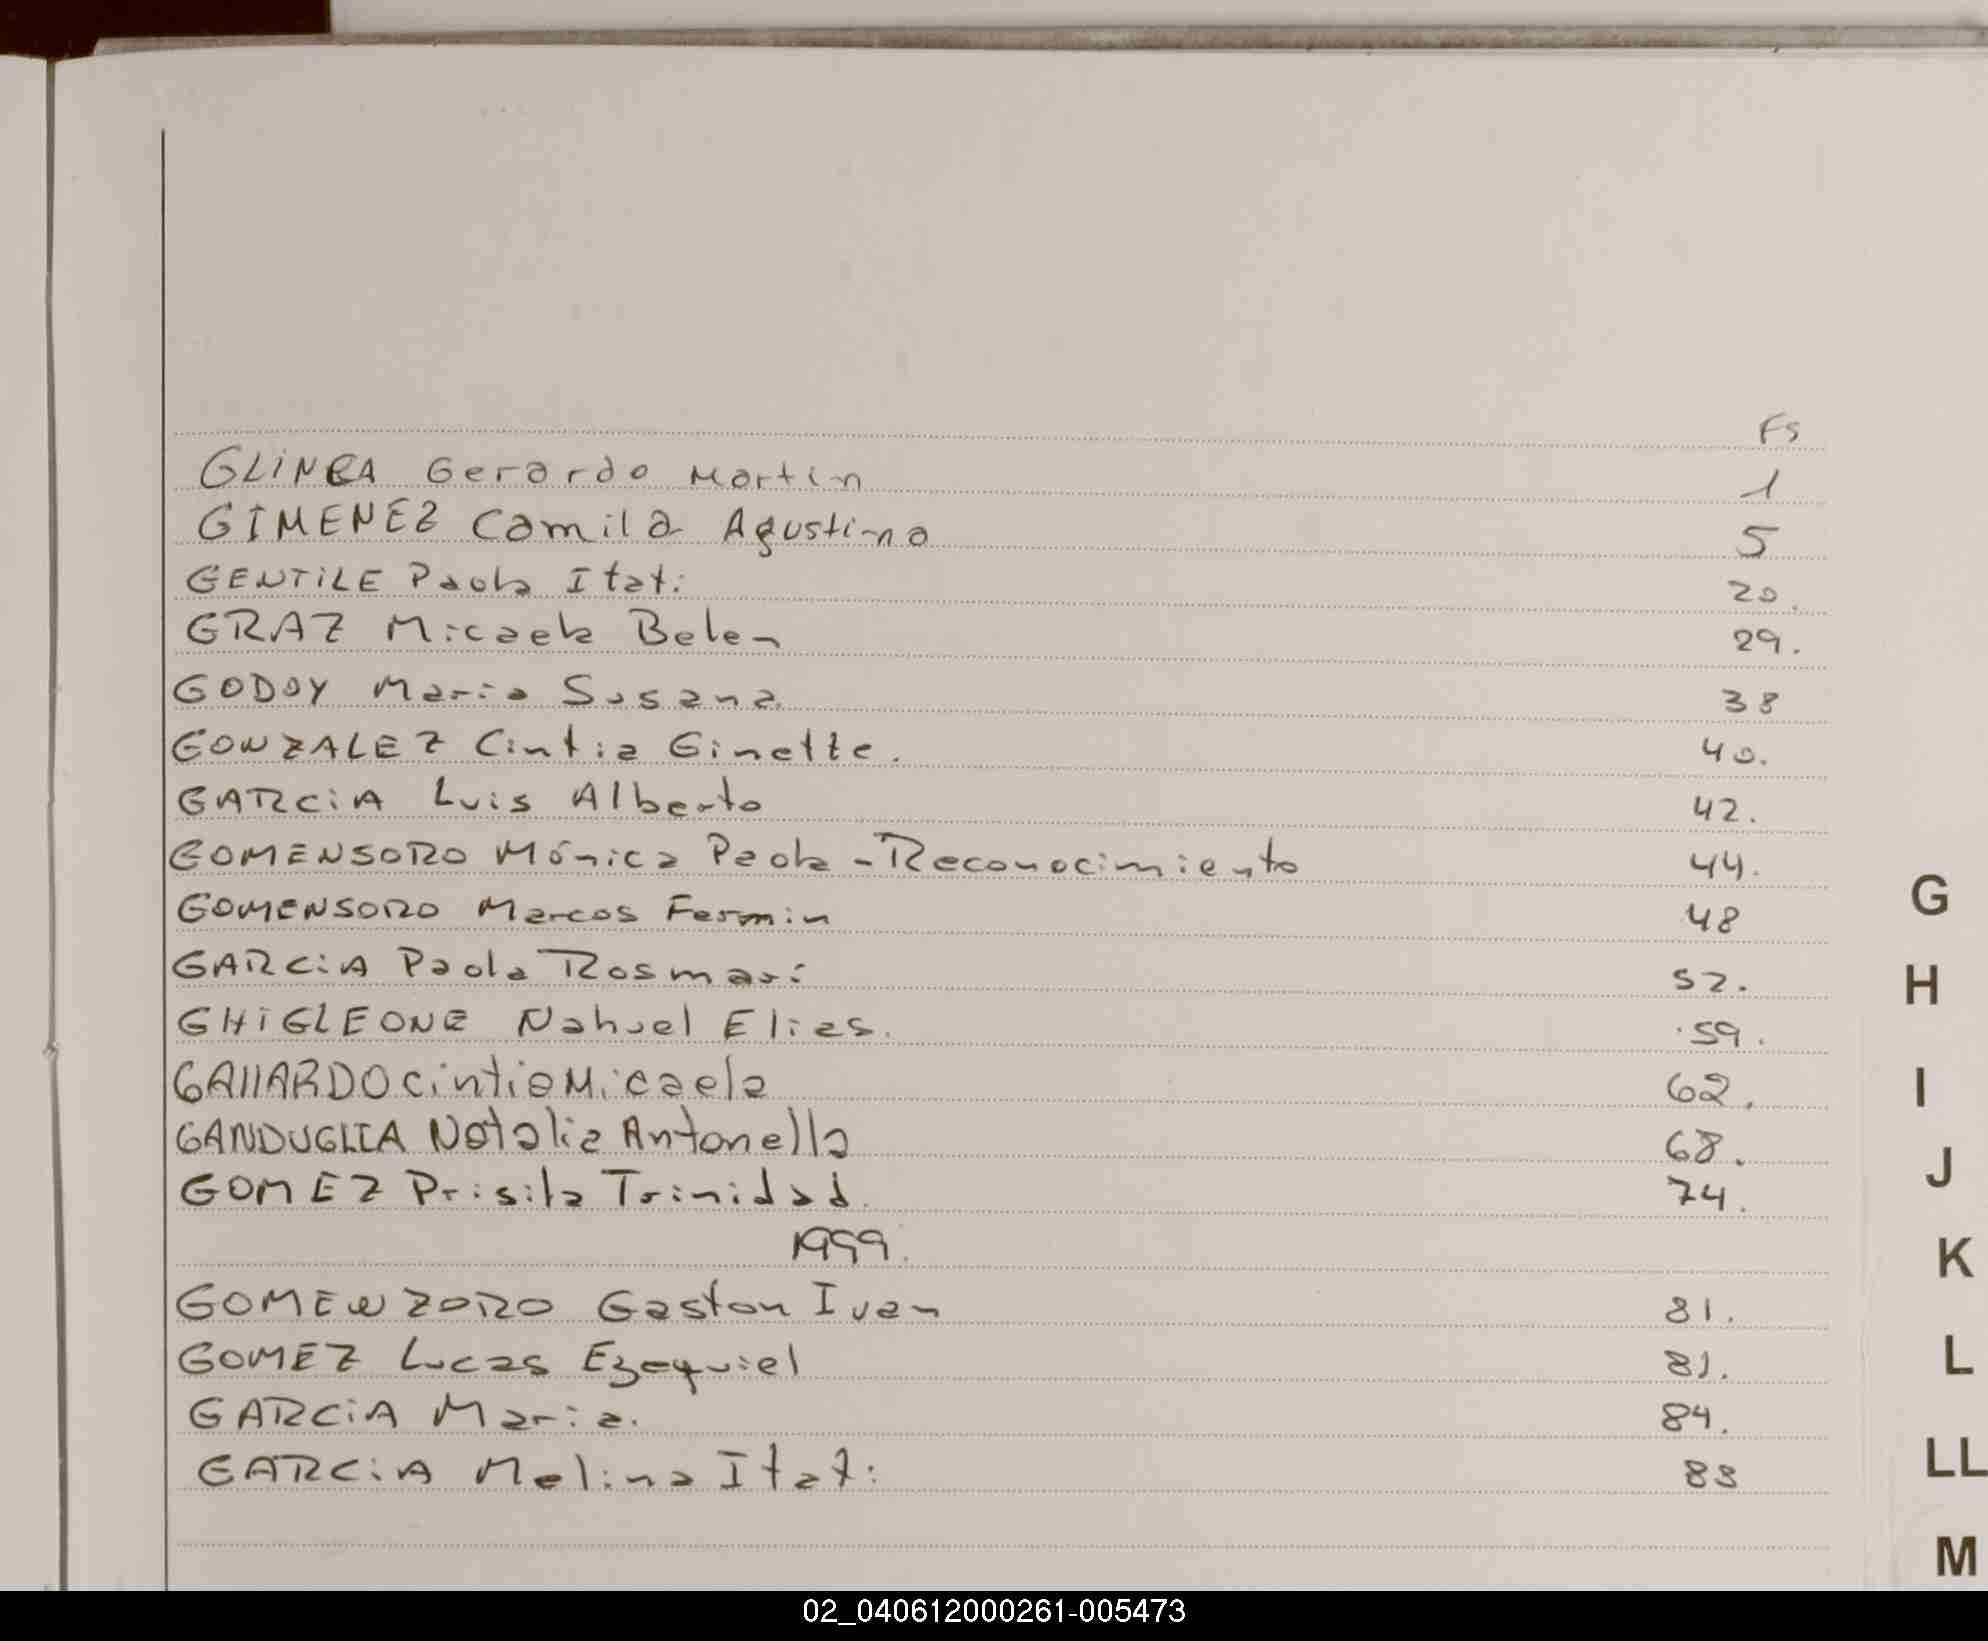 Fs
GLINCA Gerardo Martin 1
GIMENEZ Camila Agustina 5
GENTILE Paola Itati 20.
GRAZ Micaela Belen 29.
GODOY Maria Susana. 38
GONZALEZ Cintia Ginette. 40.
GARCIA Luis Alberto 42.
GOMENSORO Mónica Paola - Reconocimiento 44.
GOMENSORO Marcos Fermin 48
GARCIA Paola Rosmari 52.
GHIGLEONE Nahuel Elias. 59.
GAllARDO Cintia Micaela 62.
GANDUGLIA Natalia Antonella 68.
GOMEZ Prisila Trinidad. 74.
1999.
GOMENZORO Gaston Ivan 81.
GOMEZ Lucas Ezequiel 81.
GARCIA Maria. 84.
GARCIA Melina Itati 88
G
H
I
J
K
L
LL
M
02_040612000261-005473